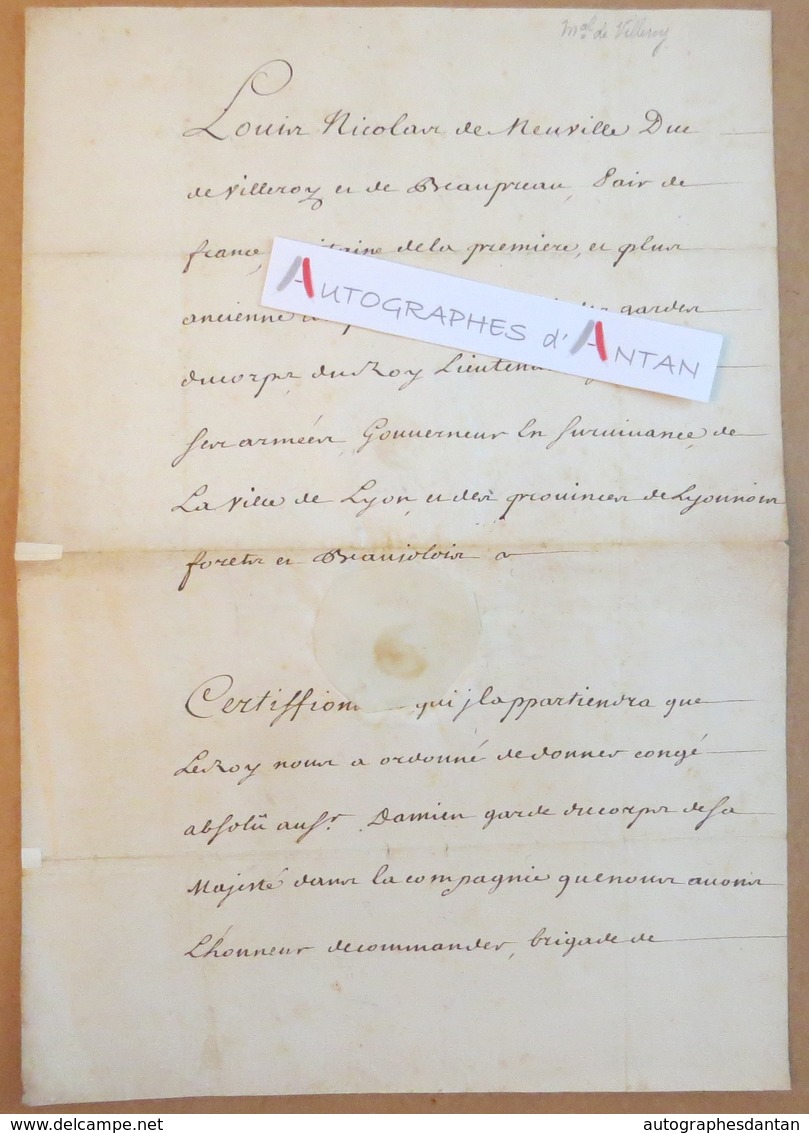 Mal de Villeroy
Louis Nicolas de Neuville Duc
de Villeroy et de Beaupreau, Pair de
france, itaine de la premiere, et plus
ancienne des gardes
du corps du Roy Lieutena
ses armées, Gouverneur En Survivance, de
La Ville de Lyon, et des provinces de Lyonnois
forets et Beaujolois a
AUTOGRAPHES d'ANTAN
Certiffions qui jl appartiendra que
Le Roy nous a ordonné de donner congé
absolû au Sr. Damien garde du corps de Sa
Majesté dans la compagnie que nous avons
L'honneur de commander, brigade de
www.delcampe.net
autographesdantan